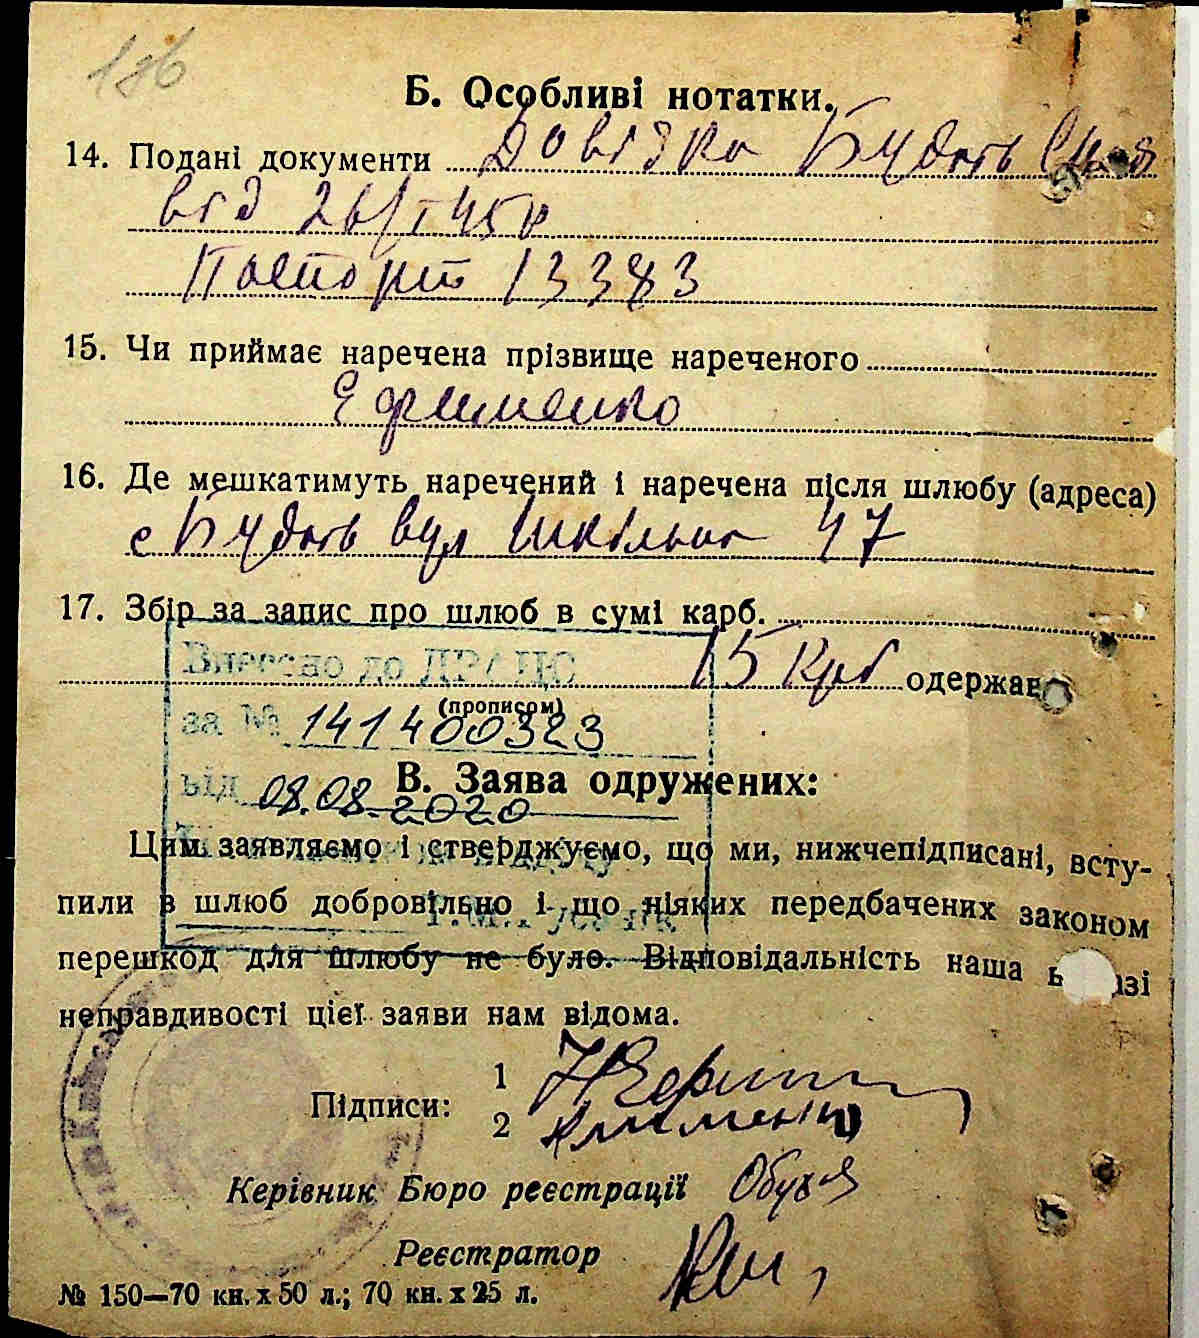 Б. Особливі нотатки.
14. Подані документи Довідка Будать
від 26/I 45р
Паспорт 13383
15. Чи приймає наречена прізвище нареченого
Єфименко
16. Де мешкатимуть наречений і наречена після шлюбу (адреса)
с Будать вул Шкільна 47
17. Збір за запис про шлюб в сумі карб.
Внесено до ДРАЦС
15 крб одержав
(прописом)
за № 141400323
В. Заява одружених:
від 08.08.2020
Цим заявляємо і стверджуємо, що ми, нижчепідписані, всту-
пили в шлюб добровільно і що ніяких передбачених законом
перешкод для шлюбу не було. Відповідальність наша в разі
неправдивості цієї заяви нам відома.
Підписи:
1
2
Керівник Бюро реєстрації
Реєстратор
№ 150—70 кн. х 50 л.; 70 кн. х 25 л.